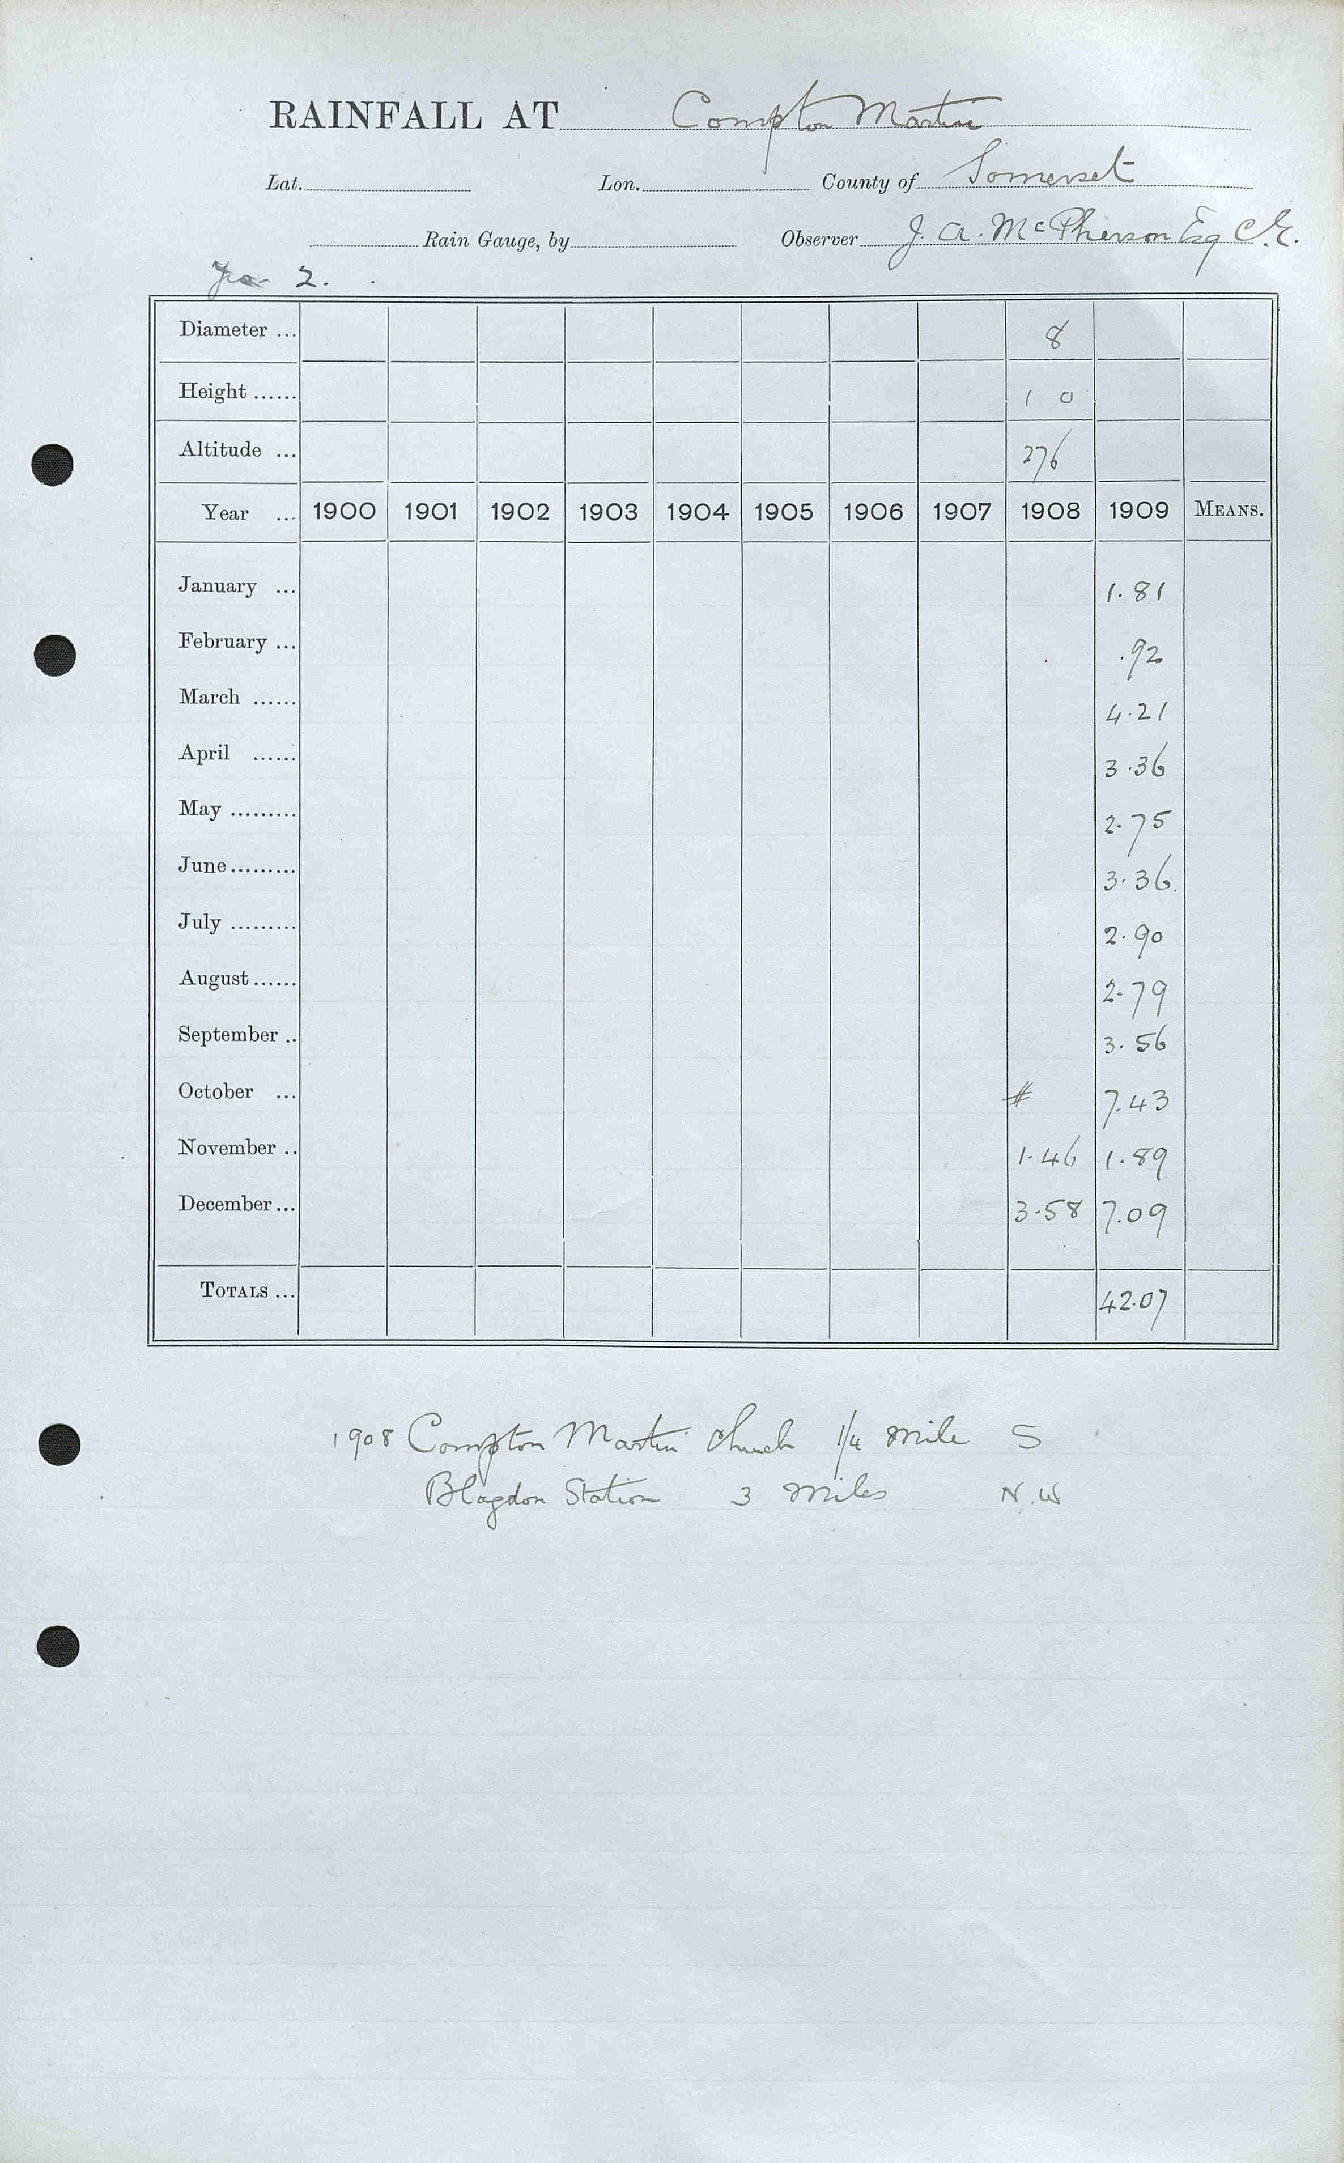 RAINFALL AT Compton Martin
Lat. Lon. County of Somerset
Rain Gauge, by Observer J. A. McPherson Esq C.E.
2.
Diameter ... 8
Height ...... 1 0
Altitude ... 276
Year ... 1900 1901 1902 1903 1904 1905 1906 1907 1908 1909 MEANS.
January ... 1.81
February ... .92
March ...... 4.21
April ...... 3.36
May ......... 2.75
June ......... 3.36
July ......... 2.90
August ...... 2.79
September .. 3.56
October ... # 7.43
November .. 1.46 1.89
December ... 3.58 7.09
TOTALS ... 42.07
1908 Compton Martin Church 1/4 mile S
Blagdon Station 3 miles N.W